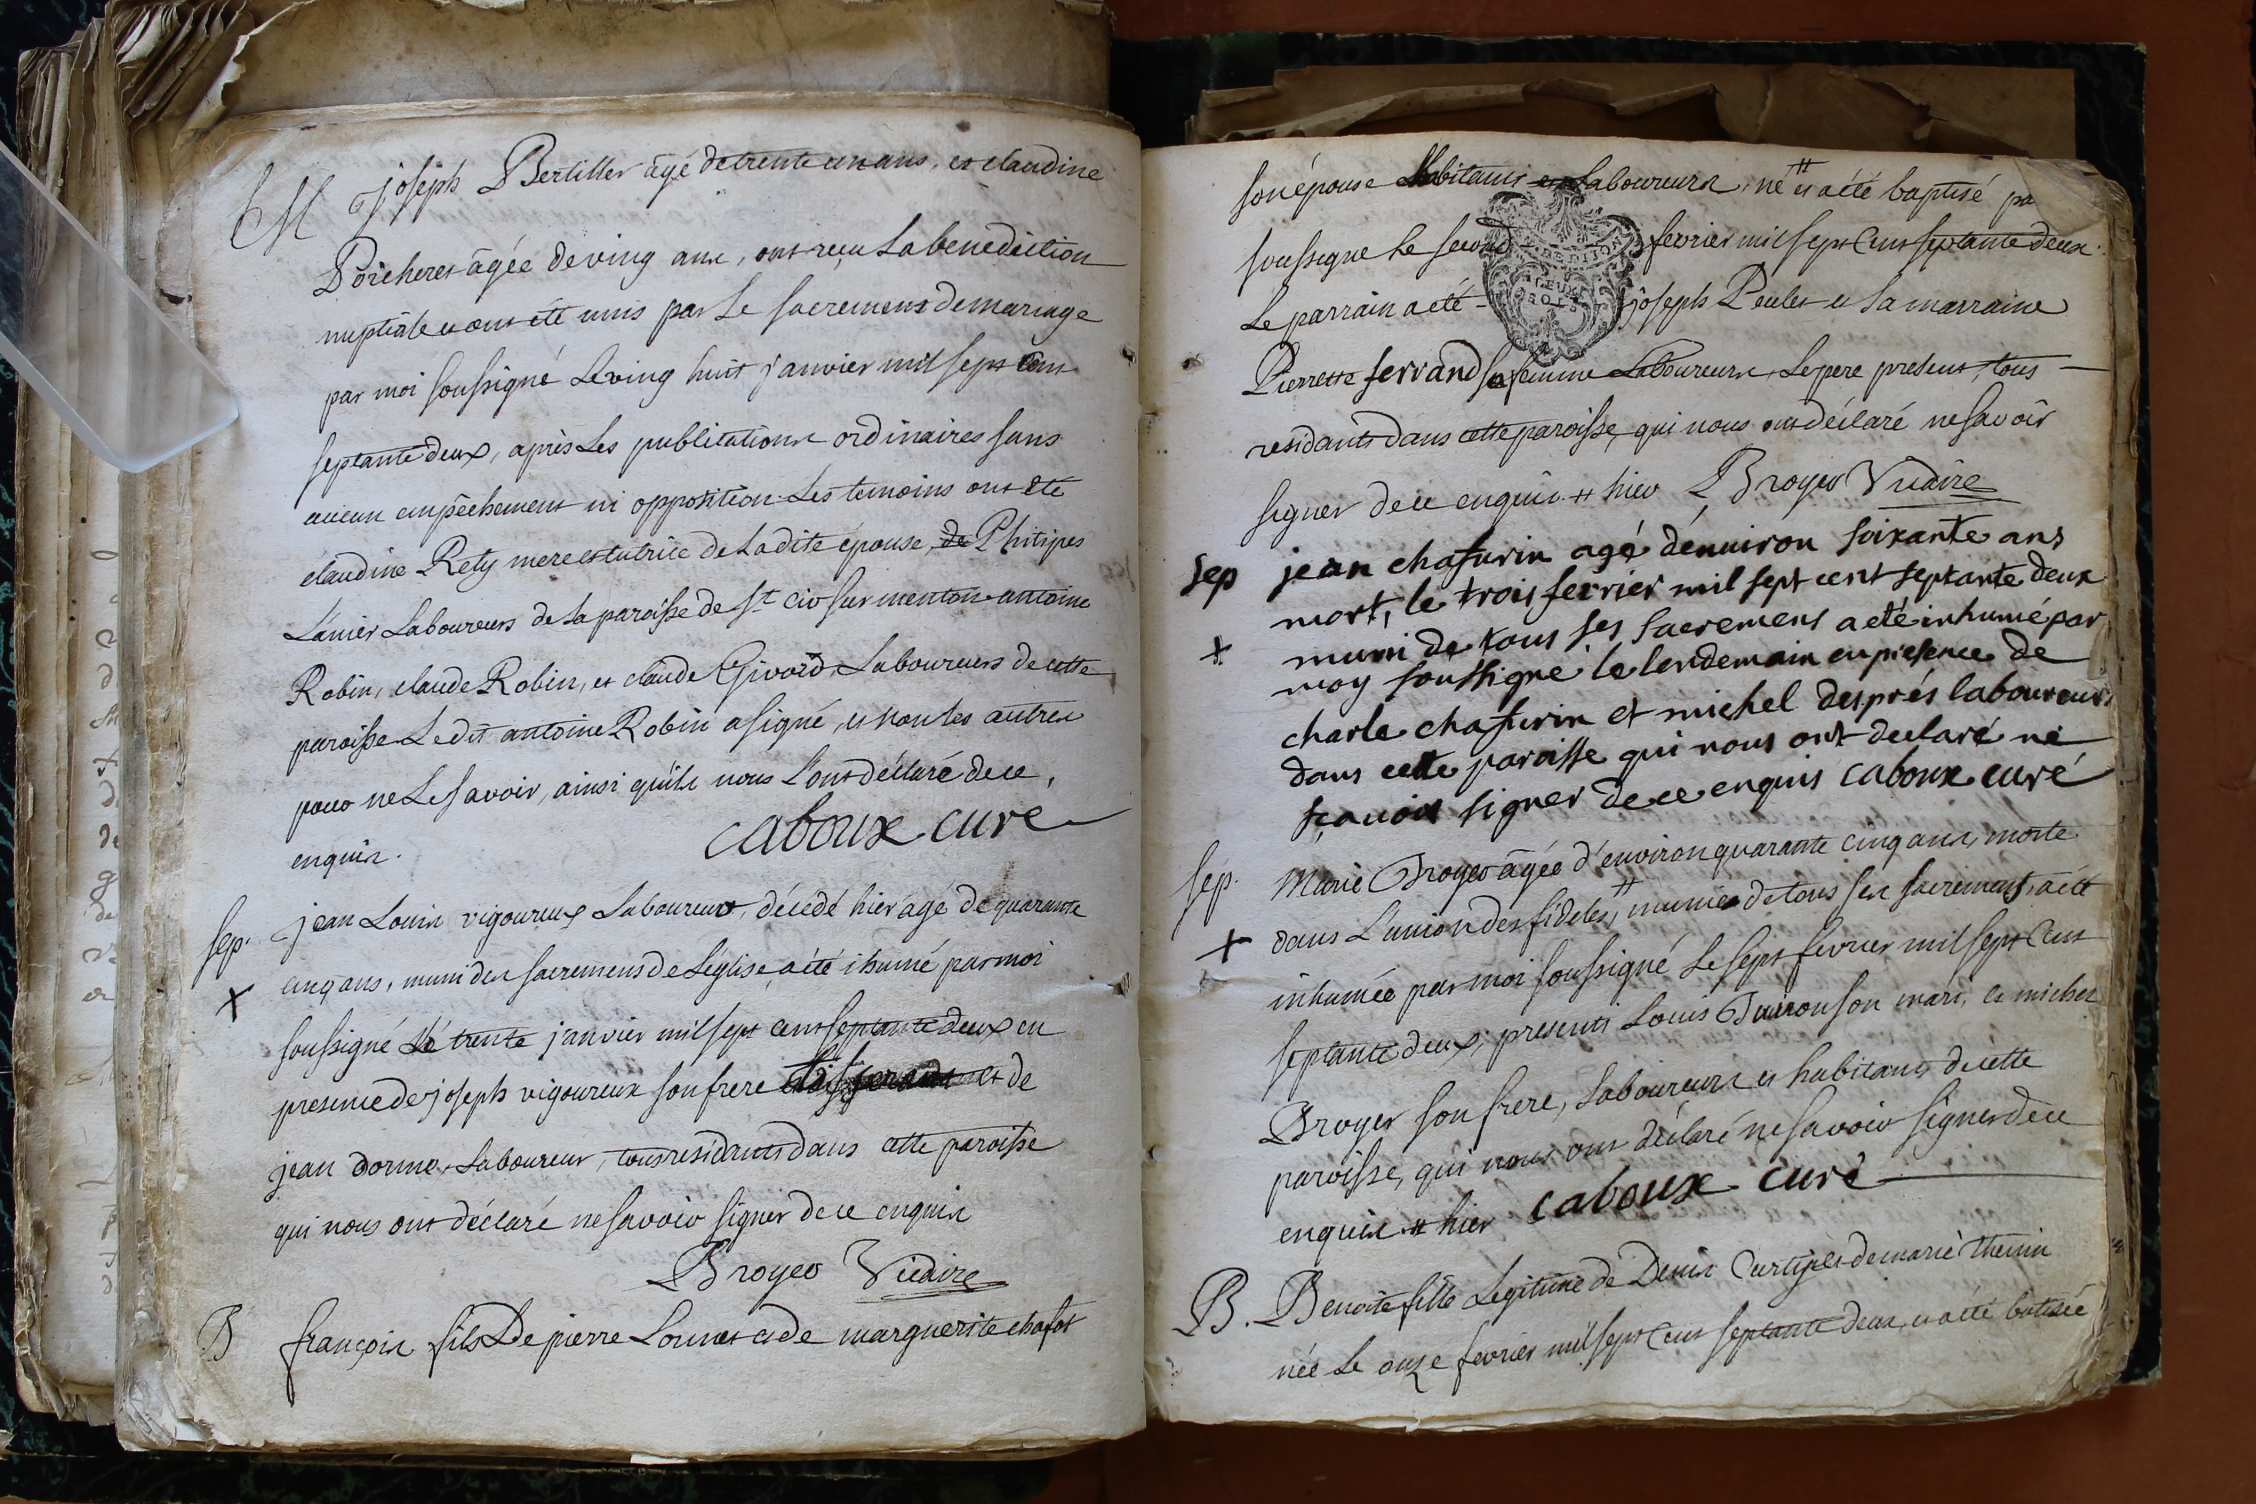 M joseph Bertiller âgé de trente un ans, et claudine
Porcheret âgée de ving ans, ont reçu La benediction
nuptiale et ont été unis par Le sacrement de mariage
par moi soussigné Le ving huit janvier mil sept Cent
septante deux, après Les publications ordinaires sans
aucun empêchement ni opposition. Les temoins ont été
claudine Rety mere et tutrice de La dite épouse, de Philipes
Lanier Laboureurs de La paroisse de St cir sur menton antoine
Robin, claude Robin, et claude Givord Laboureurs de cette
paroisse Le dit antoine Robin a signé, et non les autres
pour ne Le savoir, ainsi qu'ils nous L'ont déclaré de ce,
enquis. caboux curé
sep. jean Louis vigoureux Laboureur, décédé hier agé de quarante
X cinq ans, muni des sacremens de L'église, a été ihumé par moi
soussigné Le trente janvier mil sept cent septante deux en
presence de joseph vigoureux son frere et de
jean dorme, Laboureur, tous residants dans cette paroisse
qui nous ont déclaré ne savoir signer de ce enquis
Broyer Vicaire
B françois fils De pierre Lonnet et de marguerite chafot
son épouse habitants et Laboureurs, né # et a été baptisé pa
soussigne Le second fevrier mil sept Cent septante deux.
Le parrain a été - joseph Peulet et La marraine
Pierrette ferrand sa femme Laboureurs, Le pere present, tous -
residants dans cette paroisse, qui nous ont déclaré ne savoir
signer de ce enquis. # hier Broyer Vicaire
Sep jean chafurin agé dénuiron soixante ans
mort, le trois fevrier mil sept cent septante deux
X muni de tous ses sacremens a eté inhumé par
moy soussigne le lendemain en presence de
charle chafurin et michel després laboureurs
dans cette paroisse qui nous ont declaré ne
sçauoir signer de ce enquis caboux curé
sep. Marie Broyer âgée d'environ quarante cinq ans, morte
X dans L'union des fideles, # munie de tous ses sacremens, a été
inhumée par moi soussigné Le sept fevrier mil sept Cent
septante deux, presents Louis Duiron son mari, et michel
Broyer son frere, Laboureurs et habitants de cette
paroisse, qui nous ont déclaré ne savoir signer de ce
enquis # hier caboux curé
B. Benoite fille Legitime de Denis Curtil et de marie Thenin
née Le onze fevrier mil sept Cent septante deux, et a été batisée